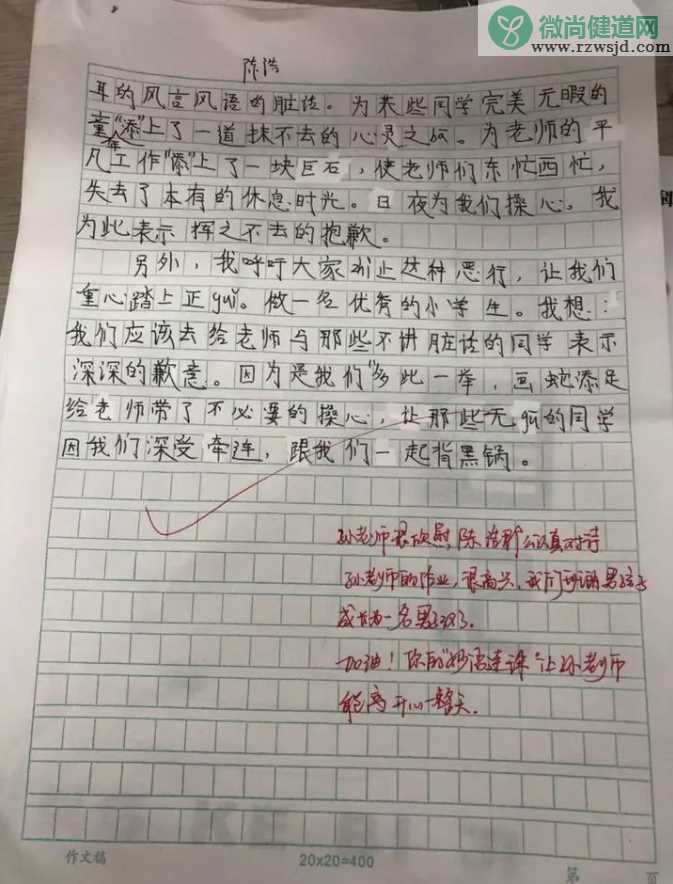 微尚健道网
www.rzwsjd.com
陈浩
耳的风言风语的脏话。为某些同学完美无暇的
童年"添"上了一道抹不去的心灵之灰。为老师的平
凡工作"添"上了一块巨石,使老师们东忙西忙,
失去了本有的休息时光。日夜为我们操心。我
为此表示挥之不去的抱歉。
另外,我呼吁大家制止这种恶行,让我们
重心踏上正guǐ。做一名优秀的小学生。我想:
我们应该去给老师与那些不讲脏话的同学表示
深深的歉意。因为是我们"多此一举,画蛇添足
给老师带了不必要的操心,让那些无gū的同学
因我们深受牵连,跟我们一起背黑锅。
孙老师很欣慰,陈浩能认真对待
孙老师的作业,很高兴,我们班的男孩子
成长为一名男子汉了。
加油!你的"妙语连珠"让孙老师
能高开心一整天。
作文稿
20x20=400
第 页